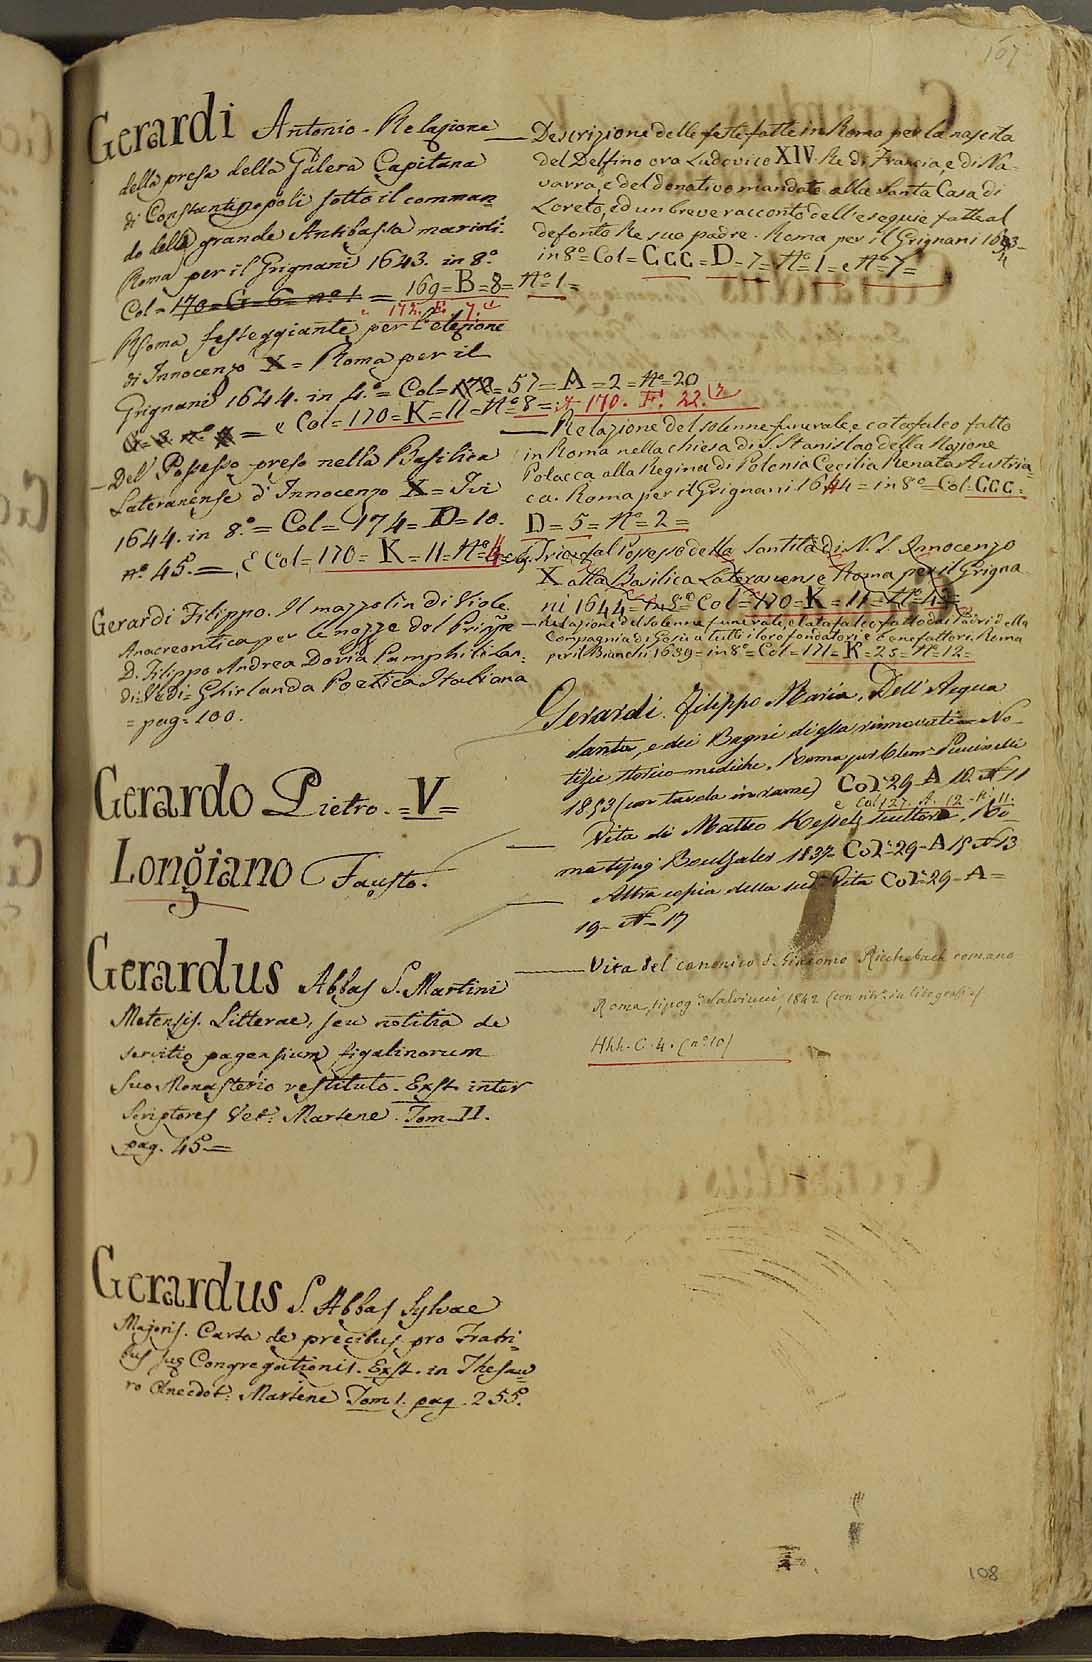 107
Gerardi Antonio - Relazione
della presa della Galera Capitana
di Constantinopoli sotto il comman
do della grande Antibassa marioli.
Roma per il Grignani 1643. in 8.º
Col = 170 = G = 6 = nº 1. = 169 = B = 8 = Nº 1 =
e 172. F. 7.
Roma festeggiante per l'elezione
di Innocenzo X = Roma per il
Grignani 1644. in 4.º = Col = 57 = A = 2 = Nº 20
= e Col = 170 = K = 11 = Nº 8 = 170. F. 22.
Del Possesso preso nella Basilica
Lateranense d'Innocenzo X = Ivi
1644. in 8.º = Col = 174 = D = 10.
nº 45. = E Col = 170 = K = 11 = Nº 4
Gerardi Filippo. Il mazzolin di Viole
Anacreontica per le nozze del Prinpe
D. Filippo Andrea Doria Pamphili Lan=
di = Vedi = Ghirlanda Poetica Italiana
= pag = 100.
Gerardo Pietro. = V =
Longiano Fausto.
Gerardus Abbas S. Martini
Metensis. Litterae, seu notitia de
servitio pagensium figalinorum
suo Monasterio restituto. Exst. inter
Scriptores Vet: Martene. Tom. II.
pag. 45. =
Gerardus S. Abbas Sylvae
Majoris. Carta de precibus pro Fratri=
bus suę Congregationis. Exst. in Thesau=
ro Anecdot: Martene Tom I. pag. 255.
— Descrizione delle feste fatte in Roma per la nascita
del Delfino ora Ludovico XIV. Re di Francia, e di Na-
varra, e del donativo mandato alla Santa Casa di
Loreto, ed un breve racconto dell'esequie fatte al
defonto Re suo padre. Roma per il Grignani 1643 -
in 8º = Col = CCC = D = 7 = Nº 1 = e Nº 7 =
— Relazione del solenne funerale, e catafalco fatto
in Roma nella chiesa di S. Stanislao della Nazione
Polacca alla Regina di Polonia Cecilia Renata Austria=
ca. Roma per il Grignani 1644 = in 8º = Col = CCC =
D = 5 = Nº = 2 =
Trionfal Possesso della Santità di N. S. Innocenzo
X alla Basilica Lateranense Roma per il Grigna
ni 1644 = in 8º = Col = 170 = K = 11 = Nº
— Relazione del solenne funerale, e catafalco fatto dai Padri della
Compagnia di Gesù a tutti i loro fondatori, e benefattori. Roma
per il Bianchi 1639 = in 8º = Col = 171 = K = 25 = Nº = 12 =
Gerardi. Filippo Maria. Dell'Acqua
Santa, e dei Bagni di essa rinnovati - No-
tizie storico-mediche. Roma per Clem. Puccinelli
1853 (con tavola in rame) Col: 29 - A 10. N 11
e Col 127. A. 12 - N. 11.
— Vita di Matteo Kessels scultore, Ro-
ma tipog. Boulzaler 1837. Col: 29 - A 15 N 13
— Altra copia della sudª Vita Col: 29 - A =
19 - N = 17
— Vita del canonico D. Giacomo Ricchebach romano
Roma, tipog. Salviucci, 1842 (con ritr. in litografia)
Hhh. C. 4. (nº 10)
108